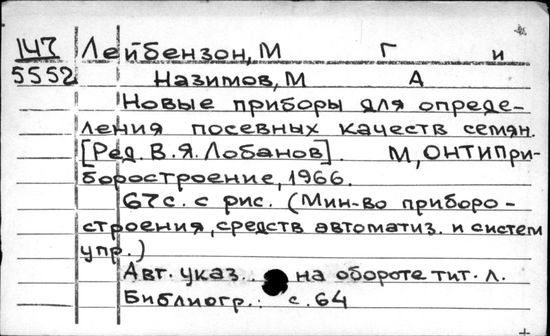 147 Лейбензон, М Г и
5552 Назимов, М А
Новые приборы для опреде-
ления посевных качеств семян.
[Ред. В.Я. Лобанов]. М, ОНТИПри-
боростроение, 1966.
67с. с рис. (Мин-во приборо-
строения, средств автоматиз. и систем
упр.)
Авт. указ. на обороте тит. л.
Библиогр.: с. 64